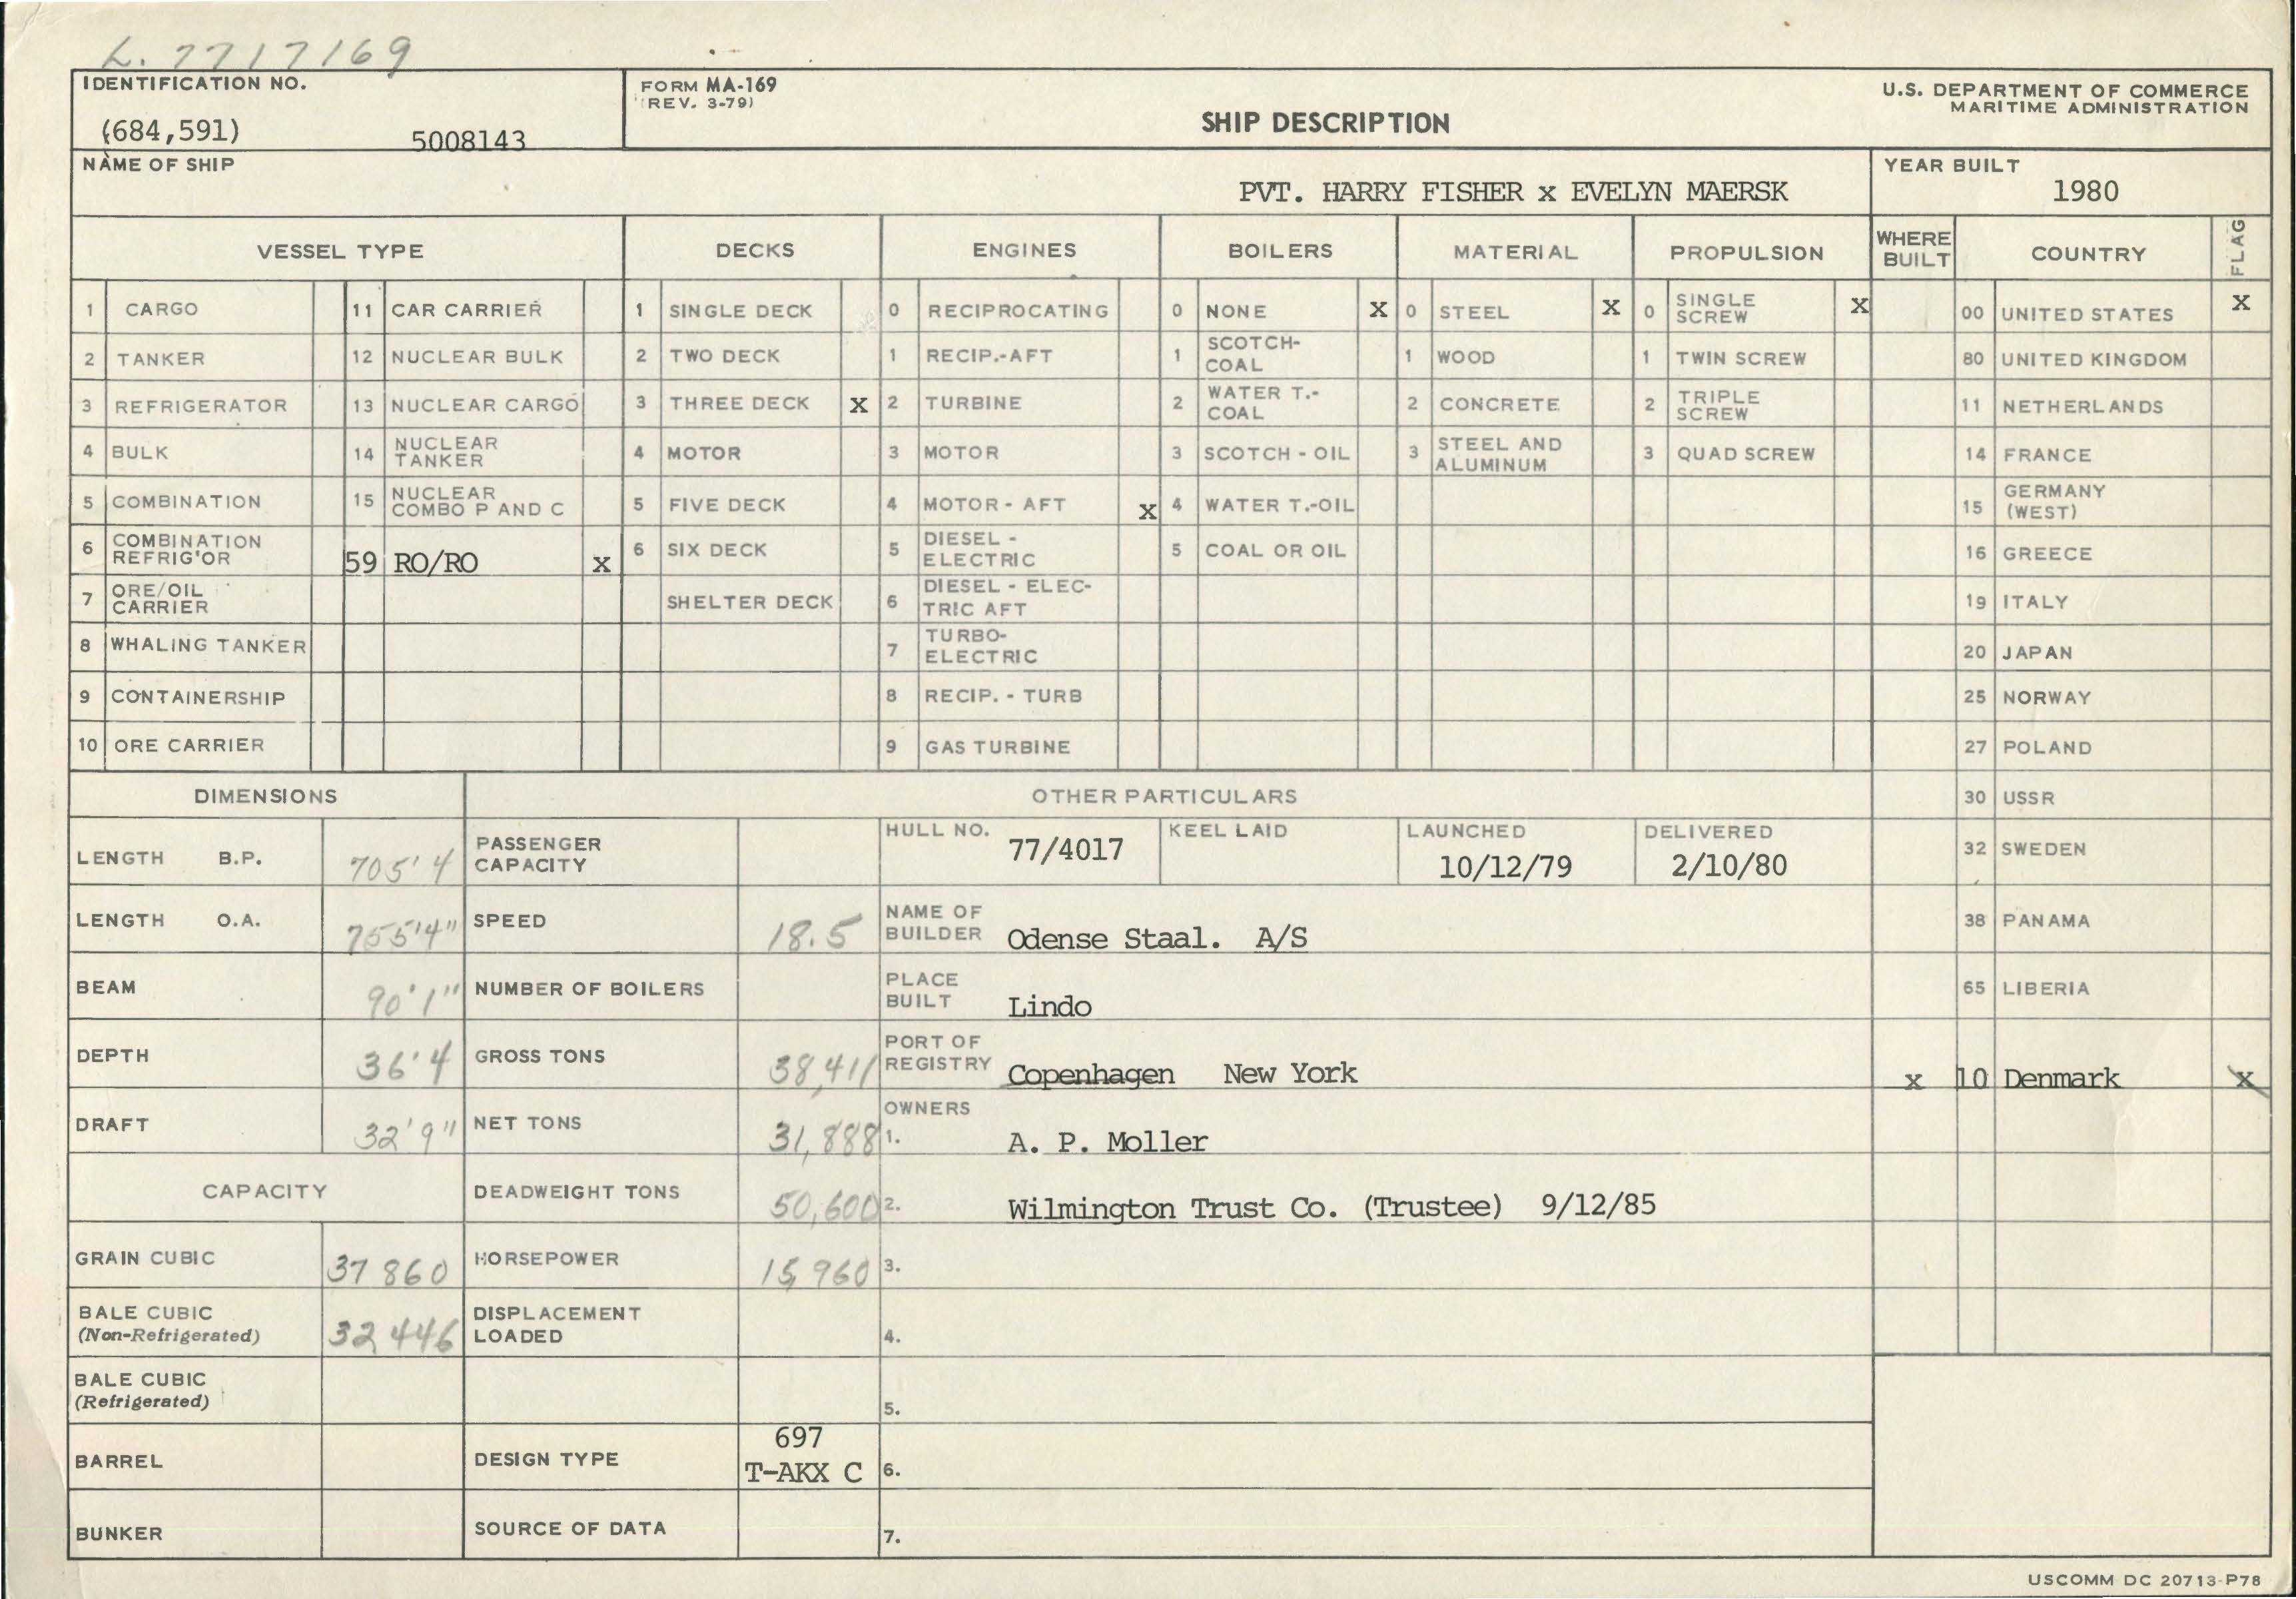 L. 7717169
IDENTIFICATION NO.
(684,591) 5008143
FORM MA-169
(REV. 3-79)
SHIP DESCRIPTION
U.S. DEPARTMENT OF COMMERCE
MARITIME ADMINISTRATION
NAME OF SHIP
PVT. HARRY FISHER x EVELYN MAERSK
YEAR BUILT
1980
VESSEL TYPE DECKS ENGINES BOILERS MATERIAL PROPULSION WHERE BUILT COUNTRY FLAG
1 CARGO 11 CAR CARRIER 1 SINGLE DECK 0 RECIPROCATING 0 NONE X 0 STEEL X 0 SINGLE SCREW X 00 UNITED STATES X
2 TANKER 12 NUCLEAR BULK 2 TWO DECK 1 RECIP.-AFT 1 SCOTCH-COAL 1 WOOD 1 TWIN SCREW 80 UNITED KINGDOM
3 REFRIGERATOR 13 NUCLEAR CARGO 3 THREE DECK X 2 TURBINE 2 WATER T.-COAL 2 CONCRETE 2 TRIPLE SCREW 11 NETHERLANDS
4 BULK 14 NUCLEAR TANKER 4 MOTOR 3 MOTOR 3 SCOTCH - OIL 3 STEEL AND ALUMINUM 3 QUAD SCREW 14 FRANCE
5 COMBINATION 15 NUCLEAR COMBO P AND C 5 FIVE DECK 4 MOTOR - AFT X 4 WATER T.-OIL 15 GERMANY (WEST)
6 COMBINATION REFRIG'OR 59 RO/RO X 6 SIX DECK 5 DIESEL - ELECTRIC 5 COAL OR OIL 16 GREECE
7 ORE/OIL CARRIER SHELTER DECK 6 DIESEL - ELECTRIC AFT 19 ITALY
8 WHALING TANKER 7 TURBO-ELECTRIC 20 JAPAN
9 CONTAINERSHIP 8 RECIP. - TURB 25 NORWAY
10 ORE CARRIER 9 GAS TURBINE 27 POLAND
DIMENSIONS OTHER PARTICULARS 30 USSR
LENGTH B.P. 705'4 PASSENGER CAPACITY HULL NO. 77/4017 KEEL LAID LAUNCHED 10/12/79 DELIVERED 2/10/80 32 SWEDEN
LENGTH O.A. 755'4" SPEED 18.5 NAME OF BUILDER Odense Staal. A/S 38 PANAMA
BEAM 90'1" NUMBER OF BOILERS PLACE BUILT Lindo 65 LIBERIA
DEPTH 36'4 GROSS TONS 38,411 PORT OF REGISTRY Copenhagen New York x 10 Denmark X
DRAFT 32'9" NET TONS 31,888 OWNERS 1. A. P. Moller
CAPACITY DEADWEIGHT TONS 50,600 2. Wilmington Trust Co. (Trustee) 9/12/85
GRAIN CUBIC 37 860 HORSEPOWER 15,960 3.
BALE CUBIC (Non-Refrigerated) 32 446 DISPLACEMENT LOADED 4.
BALE CUBIC (Refrigerated) 5.
BARREL DESIGN TYPE 697 T-AKX C 6.
BUNKER SOURCE OF DATA 7.
USCOMM DC 20713-P78